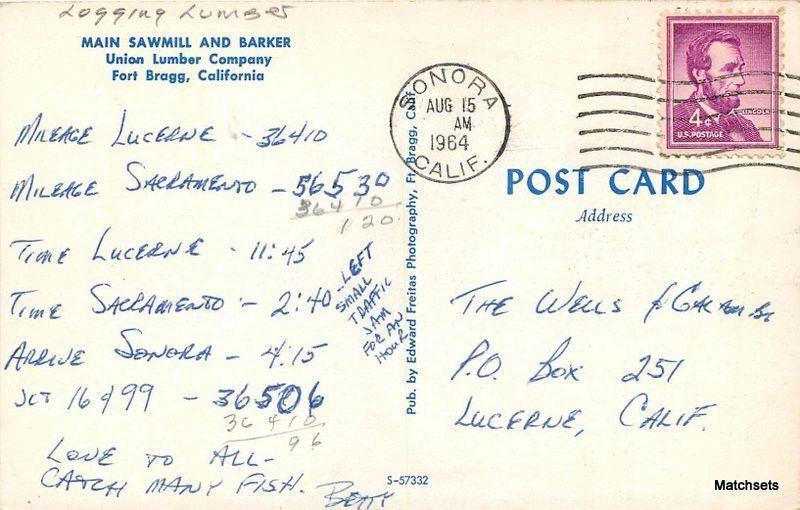 Logging Lumber
MAIN SAWMILL AND BARKER
Union Lumber Company
Fort Bragg, California
MILEAGE LUCERNE - 36410
MILEAGE SACRAMENTO - 56530
36410
120
TIME LUCERNE - 11:45
TIME SACRAMENTO - 2:40 - LEFT
SMALL
TRAFFIC
JAM
FOR AN
HOUR
ARRIVE SONORA - 4:15
JCT 16 & 99 - 36506
36410
96
LOVE TO ALL -
CATCH MANY FISH. BETTY
Pub. by Edward Freitas Photography, Ft. Bragg, Calif.
S-57332
SONORA
AUG 15
AM
1964
CALIF.
LINCOLN
4¢
U.S. POSTAGE
POST CARD
Address
THE WELLS &
P.O. BOX 251
LUCERNE, CALIF.
Matchsets